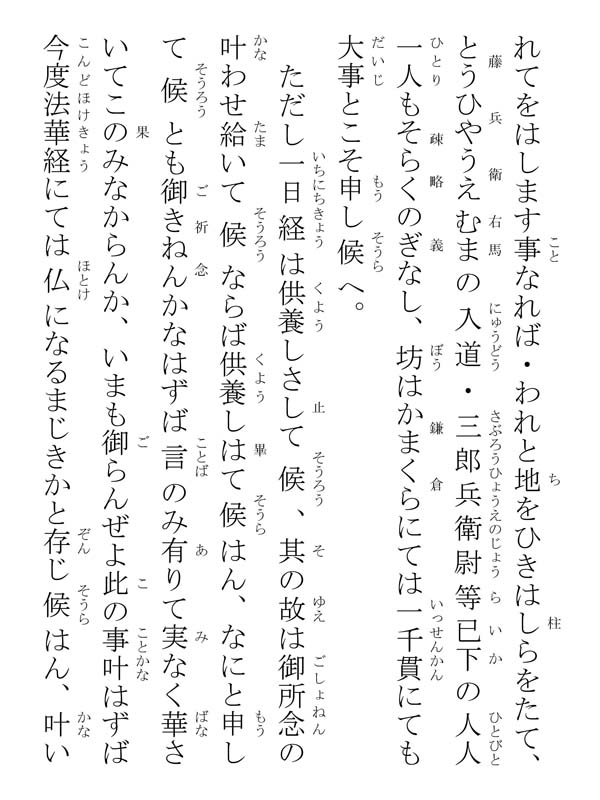 れてをはします事なれば・われと地をひきはしらをたて、
とうひやうえむまの入道・三郎兵衛尉等已下の人人
一人もそらくのぎなし、坊はかまくらにては一千貫にても
大事とこそ申し候へ。
ただし一日経は供養しさして候、其の故は御所念の
叶わせ給いて候ならば供養しはて候はん、なにと申し
て候とも御きねんかなはずば言のみ有りて実なく華さ
いてこのみなからんか、いまも御らんぜよ此の事叶はずば
今度法華経にては仏になるまじきかと存じ候はん、叶い